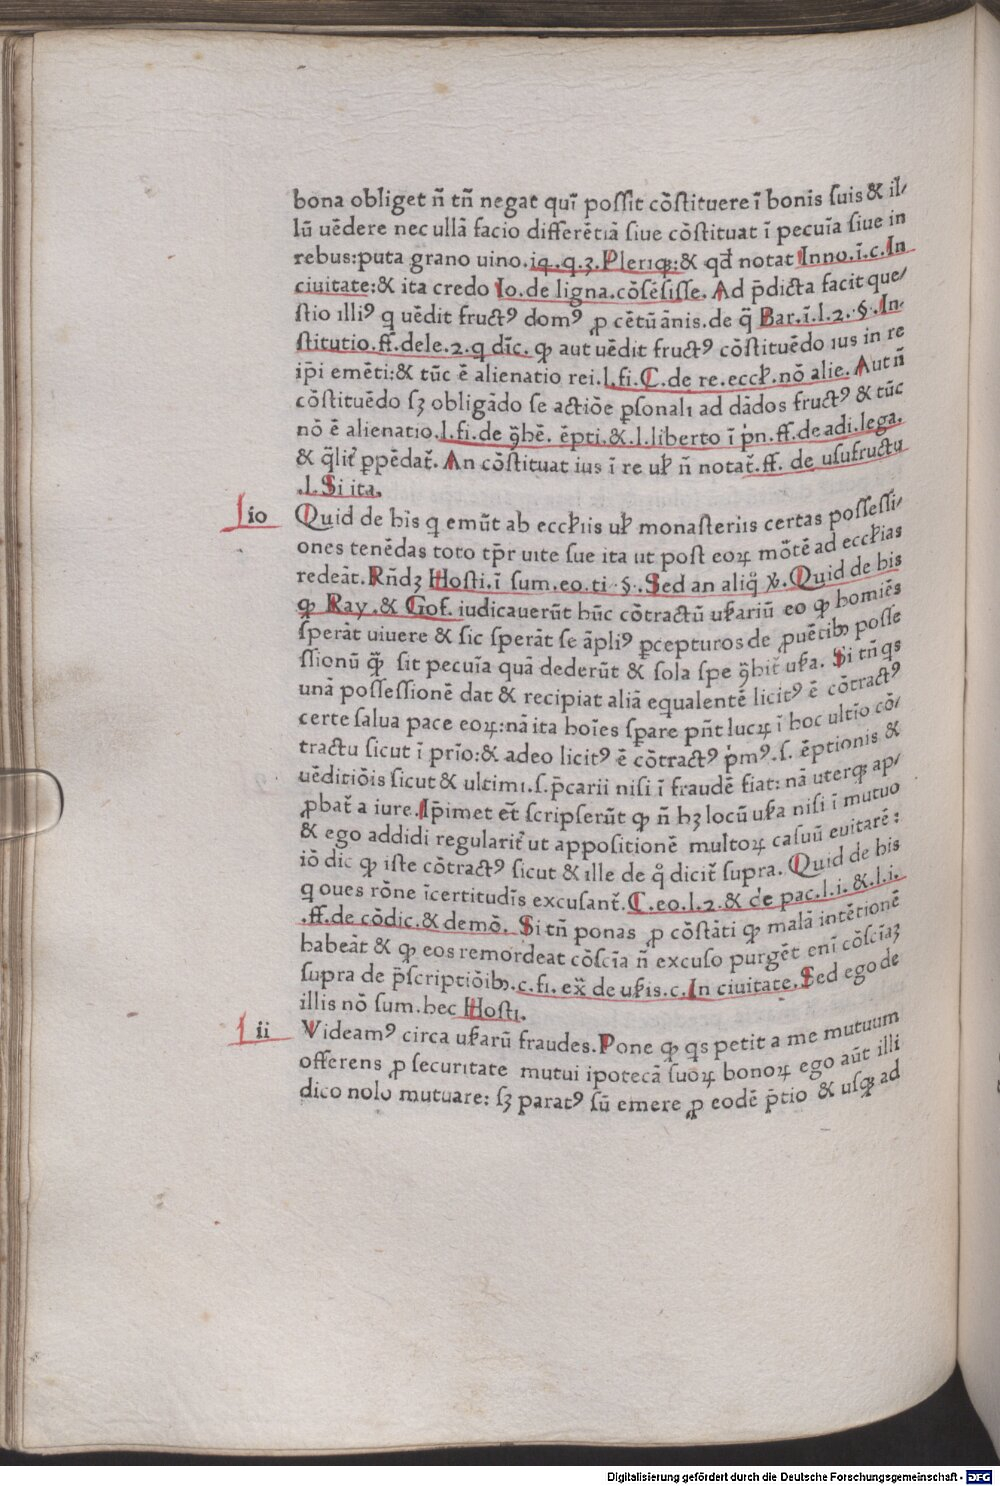 bona obliget n̄ tn̄ negat quī possit cōstituere ī bonis suis & il/
lū uēdere nec ullā facio differētiā siue cōstituat ī pecuīa siue in
rebus:puta grano uino.i4.q.3.Pleriqꝫ:& qd̄ notat Inno.ī.c.In
ciuitate:& ita credo Io.de ligna.cōsēsisse. Ad p̄dicta facit que/
stio illiꝰ q uēdit fructꝰ domꝰ ꝓ cētū ānis.de q̄ Bar.ī.l.2.§.In-
stitutio.ff.dele.2.q dīc. ꝙ aut uēdit fructꝰ cōstituēdo ius in re
ip̄i emēti:& tūc ē alienatio rei.l.fi.C.de re.eccł.nō alie. Aut n̄
cōstituēdo sꝫ obligādo se actiōe ꝑsonali ad dādos fructꝰ & tūc
nō ē alienatio.l.fi.de ꝯ̄hē. ēpti.&.l.liberto ī pͥn.ff.de adi.lega.
& q̄lit̉ ꝓpēdat̉. An cōstituat ius ī re uł n̄ notat̉.ff. de usufructu
.l.Si ita.
io Quid de his q emūt ab eccłiis uł monasteriis certas possessi/
ones tenēdas toto tp̄r uite sue ita ut post eoꝝ mōtē ad eccłias
redeāt.Rn̄dꝫ Hosti.ī sum.eo.ti.§.Sed an aliq̊ ꝟ.Quid de his
ꝙ Ray.& Gof.iudicauerūt hūc cōtractū usariū eo ꝙ homiēs
sperāt uiuere & sic sperāt se āpliꝰ ꝑcepturos de ꝓuētibꝫ posse
ssionū ꝙ̄ sit pecuīa quā dederūt & sola spe ꝯ̄hit̉ usa. Si tn̄ qs
unā possessionē dat & recipiat aliā equalentē licitꝰ ē cōtractꝰ
certe salua pace eoꝝ:nā ita hoīes sꝑare pn̄t lucꝝ ī hoc ultīo cō/
tractu sicut ī prīo:& adeo licitꝰ ē cōtractꝰ pͥmꝰ.s. ēptionis &
uēditiōis sicut & ultimi.s.p̄carii nisi ī fraudē fiat: nā uterqꝫ ap/
ꝓbat̉ a iure.Ip̄imet et̄ scripserūt ꝙ n̄ hꝫ locū usa nisi ī mutuo
& ego addidi regularit̉ ut appositionē multoꝝ casuū euitarē:
iō dic ꝙ iste cōtractꝰ sicut & ille de q̊ dicit̉ supra. Quid de his
q oues rōne īcertitudīs excusant̉.C.eo.l.2.& de pac.l.i.&.l.i.
.ff.de cōdic.& demō. Si tn̄ ponas ꝓ cōstāti ꝙ malā intētionē
habeāt & ꝙ eos remordeat cōscīa n̄ excuso purgēt enī cōscīaꝫ
supra de p̄scriptiōibꝫ.c.fi.ex̄ de usis.c.In ciuitate.Sed ego de
illis nō sum.hec Hosti.
ii Videamꝰ circa usarū fraudes.Pone ꝙ qs petit a me mutuum
offerens ꝓ securitate mutui ipotecā suoꝝ bonoꝝ ego aūt illi
dico nolo mutuare: sꝫ paratꝰ sū emere ꝓ eodē p̄tio & usqꝫ ad
Digitalisierung gefördert durch die Deutsche Forschungsgemeinschaft - DFG